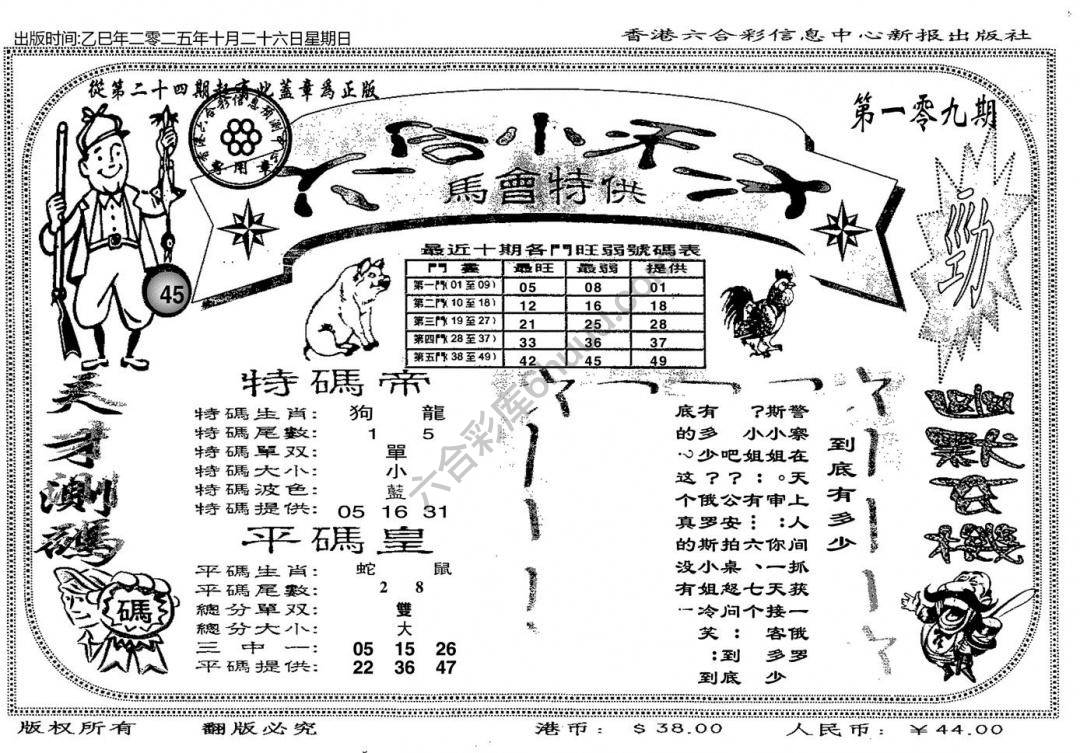 出版时间:乙巳年二零二五年十月二十六日星期日
香港六合彩信息中心新报出版社
從第二十四期起有此蓋章爲正版
第一零九期
馬會特供
勁
45
最近十期各門旺弱號碼表
門 最旺 最弱 提供
第一門(01至09) 05 08 01
第二門(10至18) 12 16 18
第三門(19至27) 21 25 28
第四門(28至37) 33 36 37
第五門(38至49) 42 45 49
天才測碼
特碼帝
特碼生肖: 狗 龍
特碼尾數: 1 5
特碼單双: 單
特碼大小: 小
特碼波色: 藍
特碼提供: 05 16 31
平碼皇
平碼生肖: 蛇 鼠
平碼尾數: 2 8
總分單双: 雙
總分大小: 大
三中一: 05 15 26
平碼提供: 22 36 47
碼
幽默玄機
到底有多少
警察在天上人间抓获一俄罗
斯小姐。审:你一天接客多少
?小姐:有…六、七个
吧?公安拍桌怒问:到底
有多少?俄罗斯小姐冷笑:到
底的?这个真的没有
版权所有
翻版必究
港币: $38.00
人民币: ￥44.00